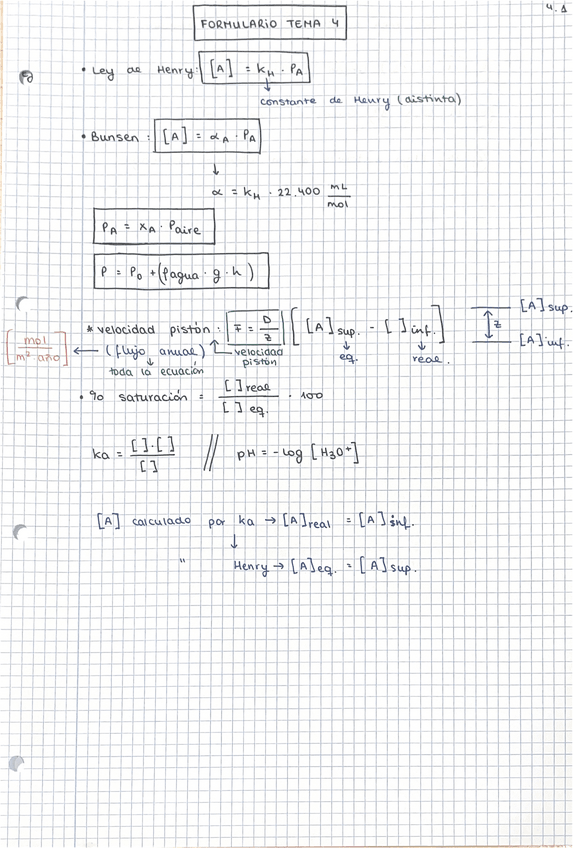 4.1
FORMULARIO TEMA 4
• Ley de Henry: [A] = kH · PA
constante de Henry (distinta)
• Bunsen: [A] = αA · PA
α = kH · 22.400 mL/mol
PA = xA · Paire
P = P0 + (ρagua · g · h)
* velocidad pistón: F = D/z [ [A]sup. - [ ]inf. ]
[A]sup.
z
[A]inf.
[mol/m²·año] ← (flujo anual)
velocidad pistón
eq.
real.
toda la ecuación
• % saturación = [ ]real/[ ]eq. · 100
ka = [ ]·[ ]/[ ] // pH = -log [H3O+]
[A] calculado por ka → [A]real = [A]inf.
" Henry → [A]eq. = [A]sup.